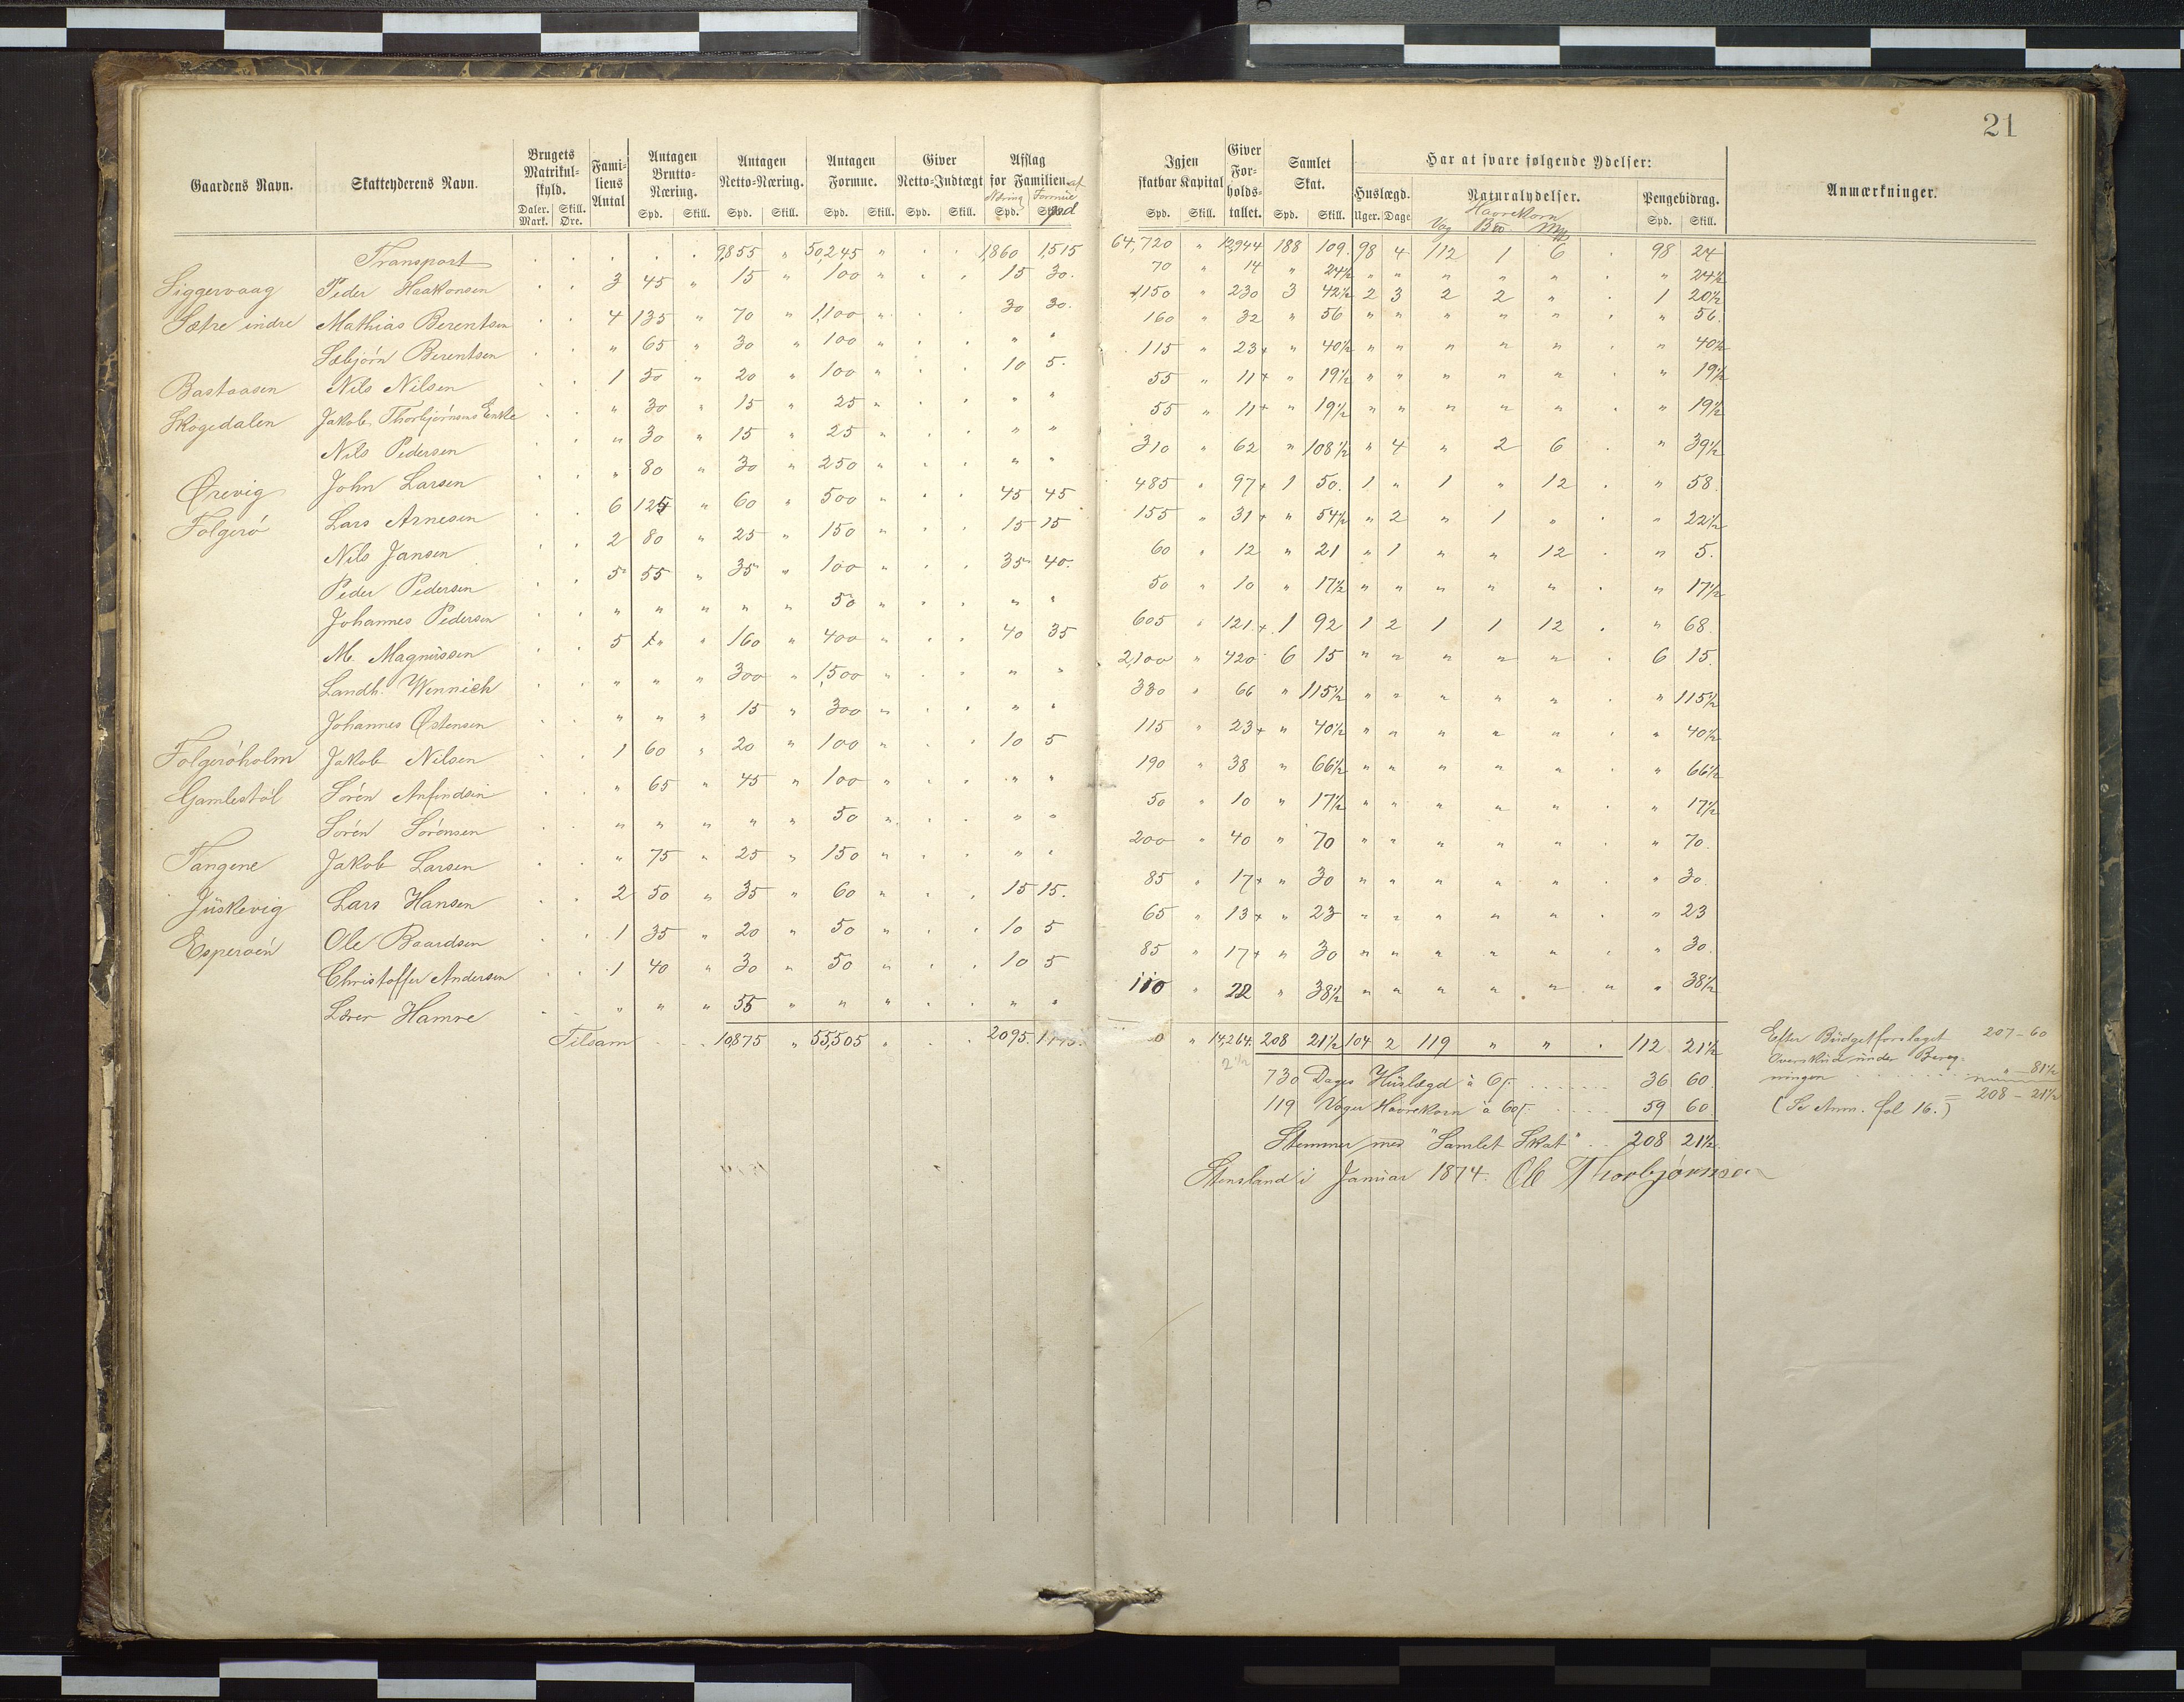 21
Gaardens Navn. Skatteyderens Navn. Brugets Matrikulskyld. Familiens Antal Antagen Brutto-Næring. Antagen Netto-Næring. Antagen Formue. Giver Netto-Indtægt Afslag for Familien af Igjen skatbar Kapital Giver Forholdstallet. Samlet Skat. Har at svare følgende Ydelser: Anmærkninger.
Huslægd. Naturalydelser. Pengebidrag.
Næring Formue
Havrekorn
Daler. Skill. Spd. Skill. Spd. Skill. Spd. Skill. Spd. Skill. Spd. Spd Spd. Skill. Spd. Skill. Uger. Dage Vog Spd. Skill.
Mark. Øre.
Transport 9,855 " 50,245 " 1,860 1,515 64,720 " 12,944 188 109. 98 4 112 1 6 98 24
Siggervaag Peder Haakonsen 3 45 " 15 " 100 " 15 30. 70 " 14 " 24½ " " " " " " 24½
Sætre indre Mathias Berentsen 4 135 " 70 " 1,100 " 30 30. 1,150 " 230 3 42½ 2 3 2 2 " 1 20½
Sæbjørn Berentsen " 65 " 30 " 100 " " " 160 " 32 " 56 " " " " " " 56.
Bastaasen Nils Nilsen 1 50 " 20 " 100 " 10 5. 115 " 23+ " 40½ " " " " " " 40½
Skogedalen Jakob Thorbjørnsens Enke " 30 " 15 " 25 " " " 55 " 11+ " 19½ " " " " " " 19½
Nils Pedersen " 30 " 15 " 25 " " " 55 " 11+ " 19½ " " " " " " 19½
Ørevig John Larsen " 80 " 30 " 250 " " " 310 " 62 " 108½ " 4 " 2 6 " 39½
Folgerø Lars Arnesen 6 125 " 60 " 500 " 45 45 485 " 97+ 1 50. 1 " 1 " 12 " 58.
Nils Jansen 2 80 " 25 " 150 " 15 15 155 " 31+ " 54½ " 2 " 1 " " 22½
Peder Pedersen 5 55 " 35 " 100 " 35 40. 60 " 12 " 21 " 1 " " 12 " 5.
Johannes Pedersen " " " " " 50 " " " 50 " 10 " 17½ " " " " " " 17½
M. Magnüssen 5 " " 160 " 400 " 40 35 605 " 121+ 1 92 1 2 1 1 12 " 68.
Landh. Wennich " " " 300 " 1,500 " " " 2,100 " 420 6 15 " " " " " 6 15.
Johannes Østensen " " " 15 " 300 " " " 330 " 66 " 115½ " " " " " " 115½
Folgerøholm Jakob Nilsen 1 60 " 20 " 100 " 10 5 115 " 23+ " 40½ " " " " " " 40½
Gamlestøl Sørén Anfindsen " 65 " 45 " 100 " " " 190 " 38 " 66½ " " " " " " 66½
Sørén Sørensen " " " " " 50 " " " 50 " 10 " 17½ " " " " " " 17½
Tangene Jakob Larsen " 75 " 25 " 150 " " " 200 " 40 " 70 " " " " " " 70.
Jüskevig Lars Hansen 2 50 " 35 " 60 " 15 15. 85 " 17+ " 30 " " " " " " 30.
Esperøén Ole Baardsen 1 35 " 20 " 50 " 10 5 65 " 13+ " 23 " " " " " " 23
Christoffer Andersen 1 40 " 30 " 50 " 10 5 85 " 17+ " 30 " " " " " " 30.
Lærer Hamre " " " 55 " " " " " 110 " 22 " 38½ " " " " " " " 38½
Tilsam 10,875 " 55,505 " 2095. " 14,264 208 21½ 104 2 119 " " 112 21½
2½
730 Dages Hüslægd à 6ẞ 36 60.
119 Voger Havrekorn à 60ẞ 59 60.
Stemmer med "Samlet Skat" 208 21½
Stensland i Januar 1874. Ole Thorbjørnsen
Efter Büdgetforslaget 207-60
Overskud ünder Beregningen " - 81½
= 208 - 21½
(Se Anm. fol 16.)